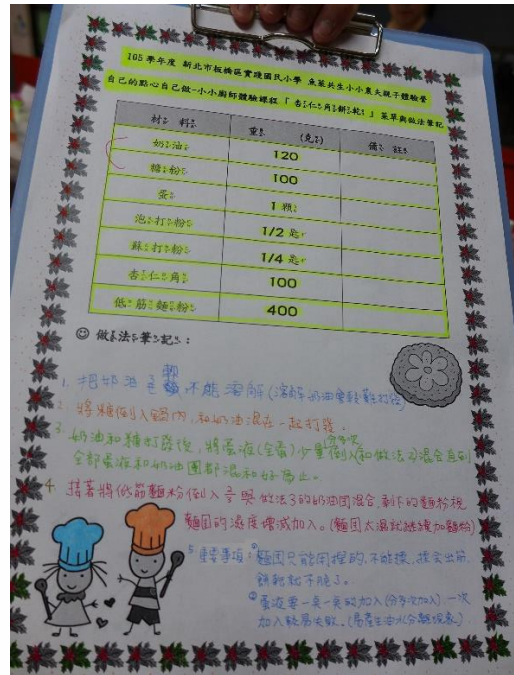 105 學年度 新北市板橋區實踐國民小學 魚菜共生小小農夫親子體驗營
自己的點心自己做-小小廚師體驗課程「杏仁角餅乾」菜單與做法筆記
材料 重 (克) 備註
奶油 120
糖粉 100
蛋 1 顆
泡打粉 1/2 匙
蘇打粉 1/4 匙
杏仁角 100
低筋麵粉 400
做法筆記:
1. 把奶油 軟 不能溶解(溶解奶油會較難打發)
2. 將糖倒入鍋內,和奶油混在一起打發.
3. 奶油和糖打發後,將蛋液(全蛋)少量 分多次 倒入(和做法2)混合直到
全部蛋液和奶油團都混和好為止.
4. 接著將低筋麵粉倒入 與做法3的奶油團混合,剩下的麵粉視
麵團的濕度增減加入。(麵團太濕就繼續加麵粉)
5. 重要事項: ①麵團只能用捏的,不能揉,揉會出筋,
餅乾就不脆了。
②蛋液要一點一點的加入(分多次加入),一次
加入較易失敗.(易產生油水分離現象)